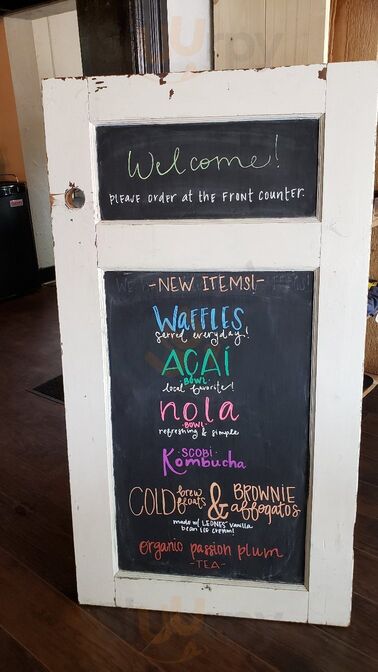 Welcome!
PLEASE ORDER AT THE FRONT COUNTER.
-NEW ITEMS!-
WAFFLES
served everyday!
AÇAÍ
·BOWL·
local favorite!
nola
·BOWL·
refreshing & simple
·SCOBI·
Kombucha
COLD brew floats & BROWNIE affogatos
made w/ LEONES' vanilla
bean ice cream!
organic passion plum
-TEA-